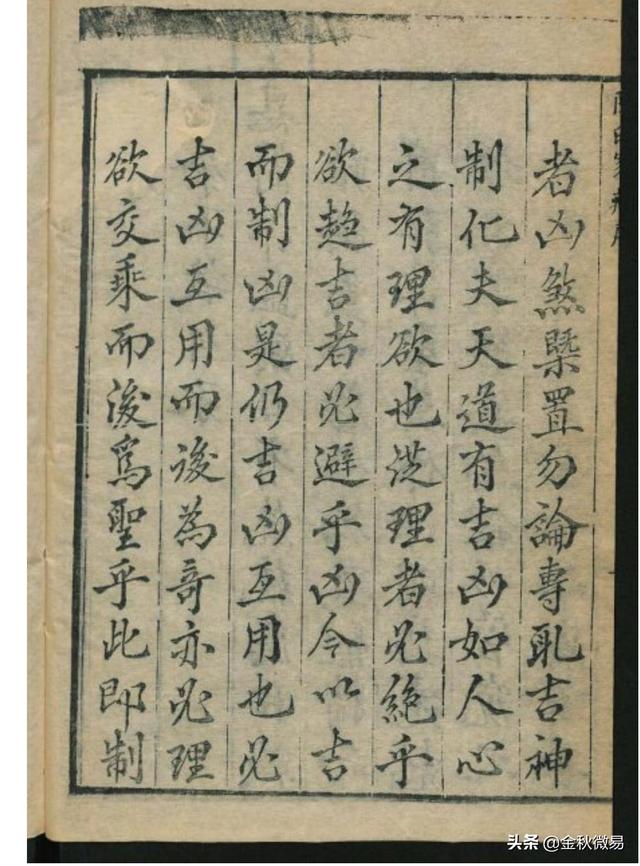 者凶煞槩置勿論專取吉神
制化夫天道有吉凶如人心
之有理欲也從理者必絶乎
欲趨吉者必避乎凶今以吉
而制凶是仍吉凶互用也必
吉凶互用而後為奇亦必理
欲交乘而後爲聖乎此即制
头条 @金秋微易